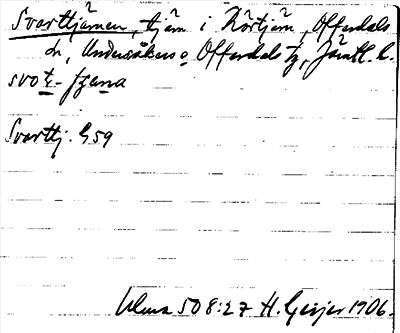 Svarttjärnen, tjärn i Rörtjärn, Offerdals
sn, Undersåkers o. Offerdals tg, Jämtl. l.
svot- fzena
Svarttj. G59
Ulma 508:27 H. Geijer 1906.